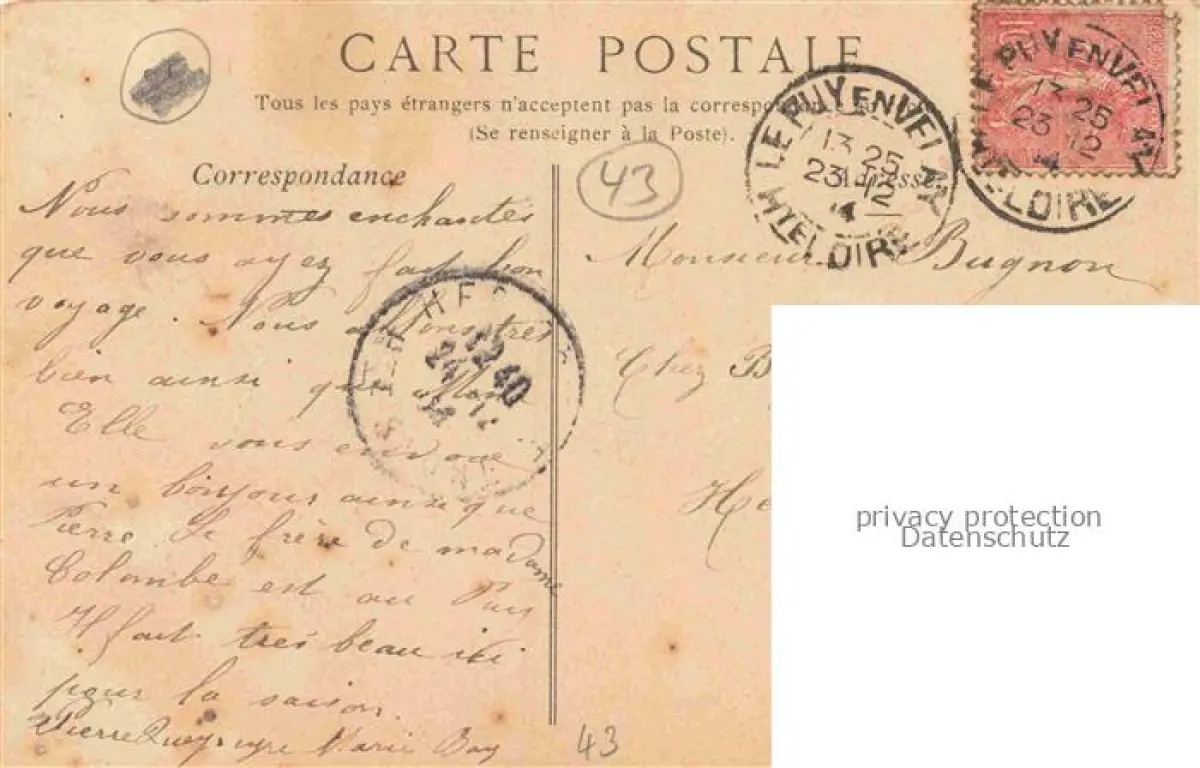 CARTE POSTALE
Tous les pays étrangers n'acceptent pas la correspondance au
(Se renseigner à la Poste).
Correspondance
Adresse
43
LE PUY EN VELAY
13 25
23 12
HTE LOIRE
LE PUY EN VELAY
13 25
23 12
HTE LOIRE
Nous sommes enchantés
que vous ayez fait bon
voyage. Nous allons très
bien ainsi que
Elle vous envoie
un bonjour ainsi que
Pierre. Le frère de madame
Colombe est au Puy
Il fait très beau ici
pour la saison.
Pierre Marie
12 40
24 12
Monsieur Bugnon
Chez B
43
privacy protection
Datenschutz